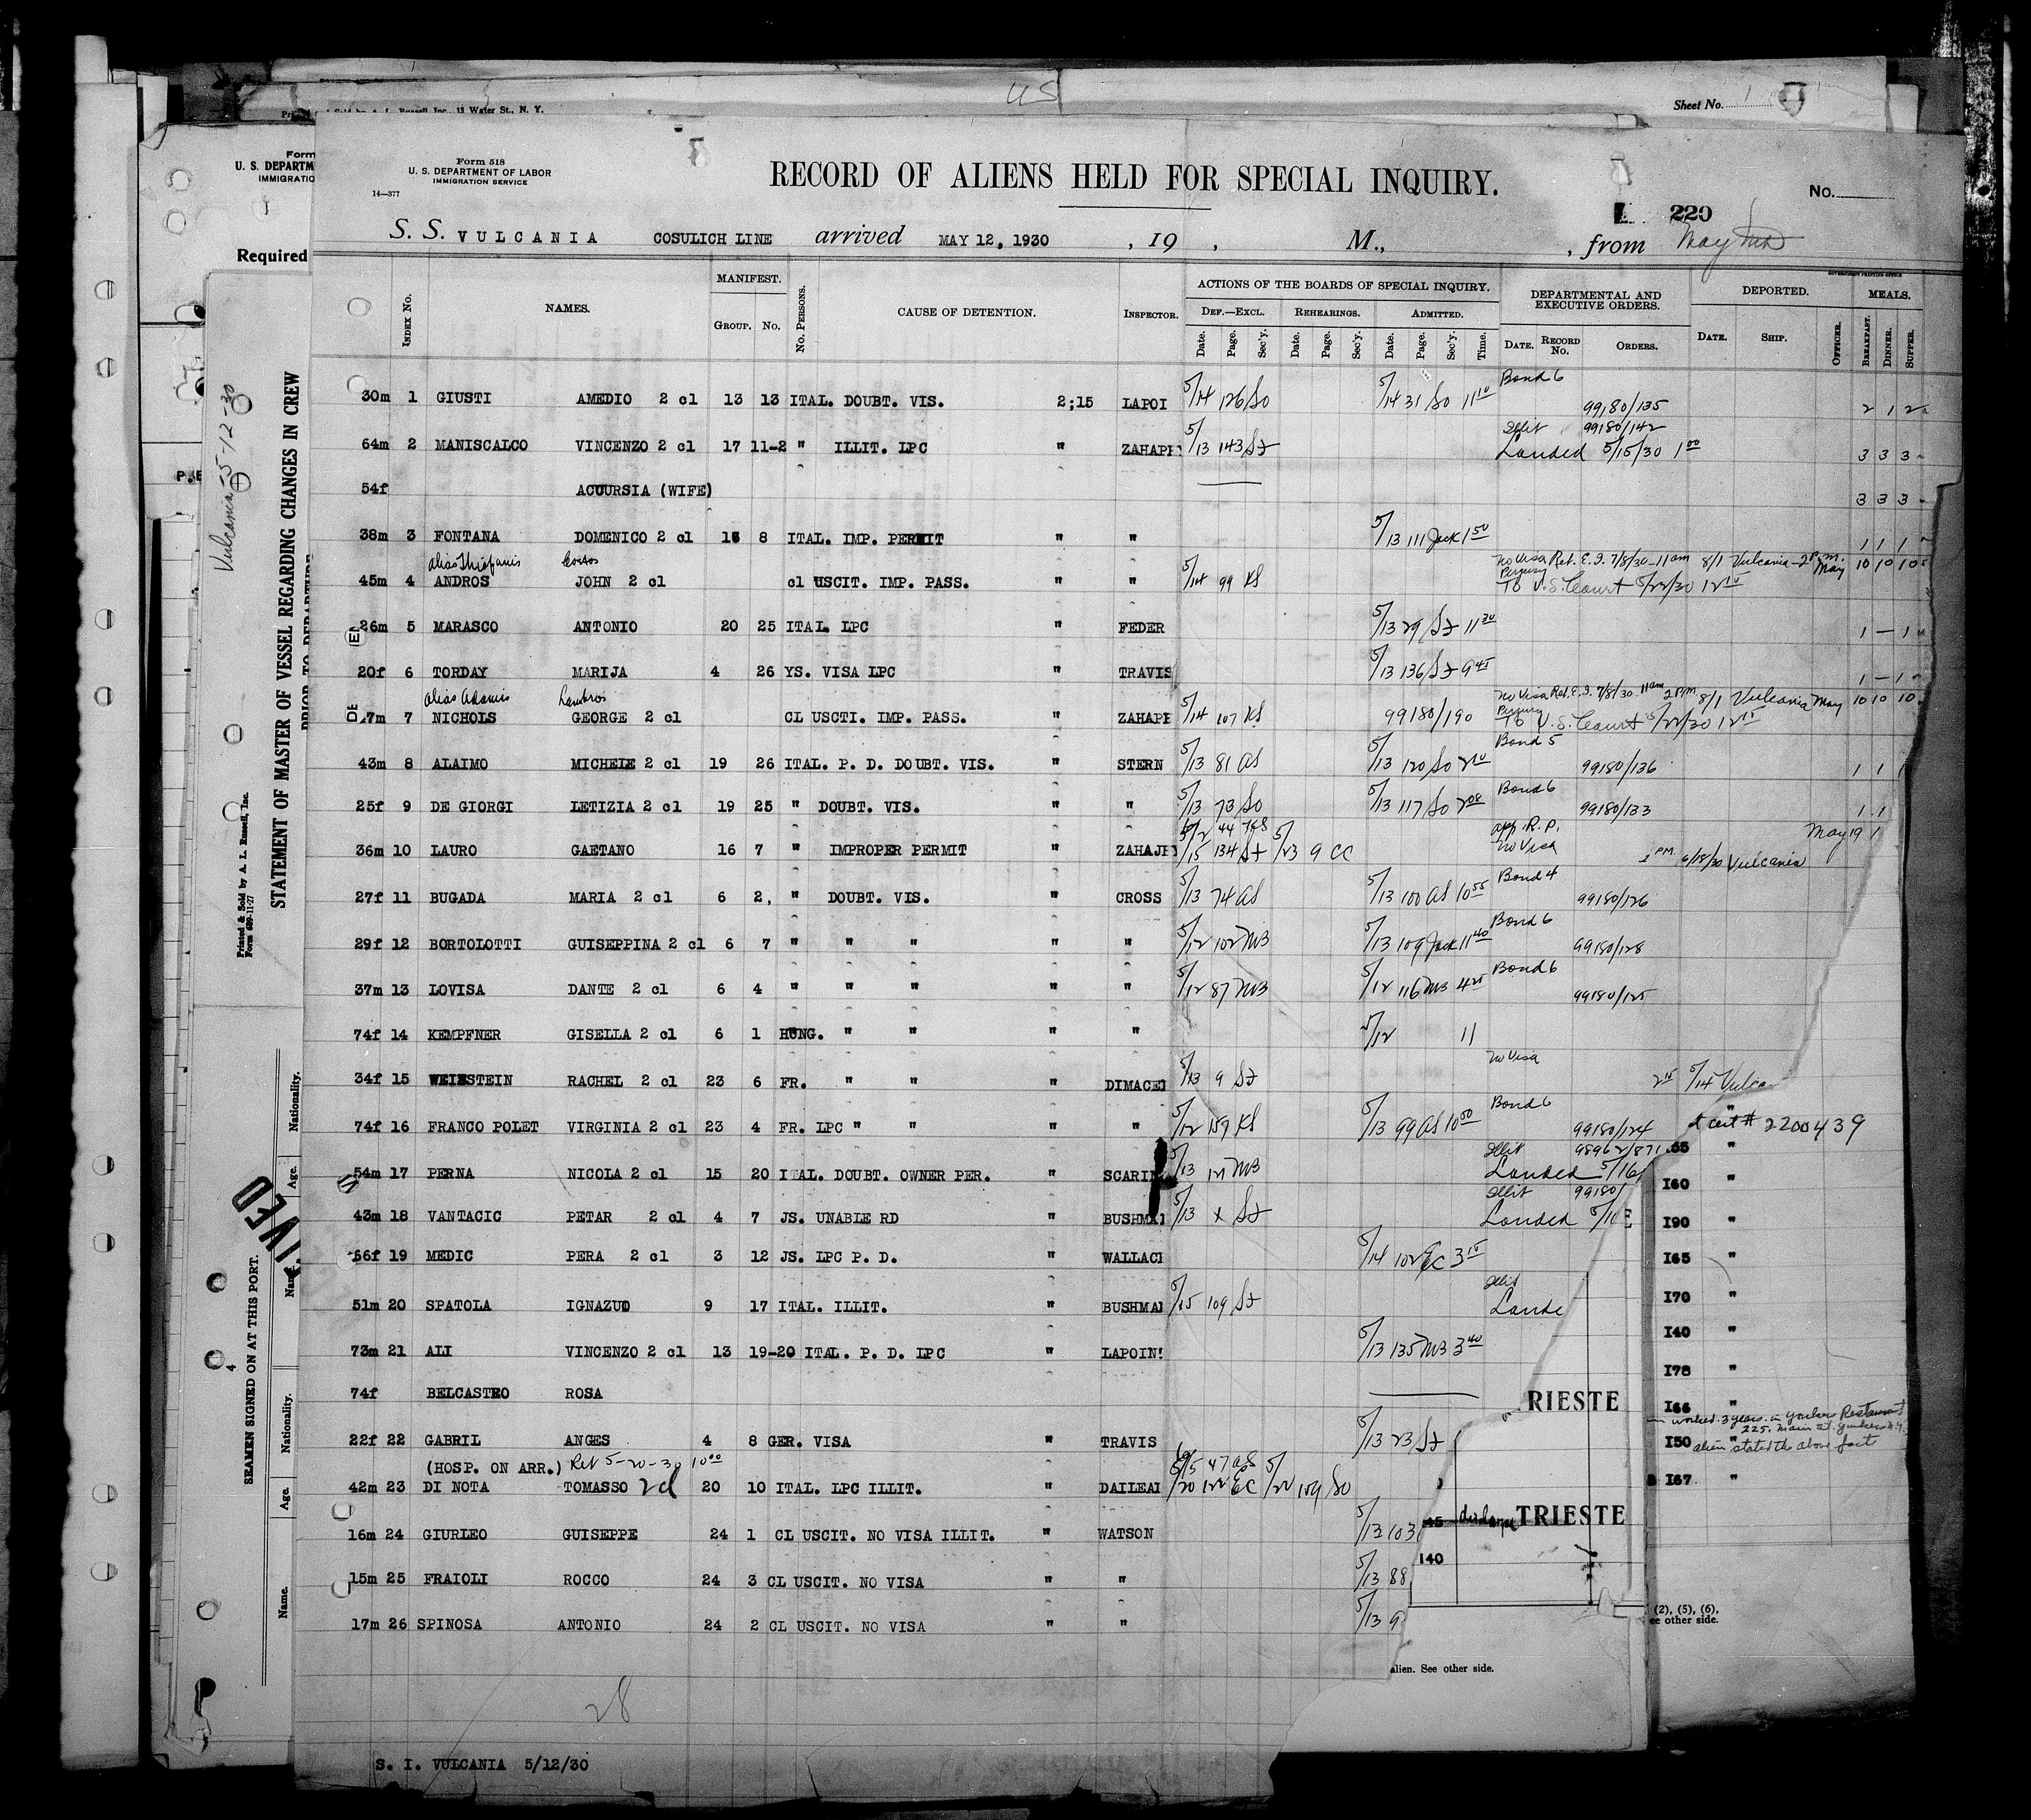 US
Printed & Sold by A. L. Russell, Inc., 13 Water St., N. Y.
Sheet No. 1
Form
U. S. DEPARTM
IMMIGRATIO
Required
Form 518
U. S. DEPARTMENT OF LABOR
IMMIGRATION SERVICE
14—377
RECORD OF ALIENS HELD FOR SPECIAL INQUIRY.
No.
220
S. S. VULCANIA COSULICH LINE arrived MAY 12, 1930 , 19 , M., , from
GOVERNMENT PRINTING OFFICE
INDEX No. NAMES. MANIFEST. GROUP. No. No. PERSONS. CAUSE OF DETENTION. INSPECTOR. ACTIONS OF THE BOARDS OF SPECIAL INQUIRY. DEPARTMENTAL AND EXECUTIVE ORDERS. DEPORTED. MEALS.
DEF.—EXCL. REHEARINGS. ADMITTED.
Date. Page. Sec'y. Date. Page. Sec'y. Date. Page. Sec'y. Time. DATE. RECORD No. ORDERS. DATE. SHIP. OFFICER. BREAKFAST. DINNER. SUPPER.
Bond 6
30m 1 GIUSTI AMEDIO 2 cl 13 13 ITAL. DOUBT. VIS. 2;15 LAPOI 5/14 126 So 5/14 31 So 11 10 99180/135 2 1 2
Illit 99180/142
64m 2 MANISCALCO VINCENZO 2 cl 17 11-2 " ILLIT. LPC " ZAHAPH 5/13 143 St Landed 5/15/30 1 00 3 3 3
54f ACUURSIA (WIFE) 3 3 3
38m 3 FONTANA DOMENICO 2 cl 16 8 ITAL. IMP. PERMIT " " 5/13 111 Jack 1 50 1 1 1
alias Costas
no Visa Ret. E. I. 7/8/30—11am 8/1 Vulcania—2 P.m. May 10 10 10
45m 4 ANDROS JOHN 2 cl cl USCIT. IMP. PASS. " " 5/14 99 KS Perjury To U.S. Court 5/22/30 12 10
26m 5 MARASCO ANTONIO 20 25 ITAL. LPC " FEDER 5/13 29 St 11 30 1 — 1
20f 6 TORDAY MARIJA 4 26 YS. VISA LPC " TRAVIS 5/13 136 St 9 45 1 — 1
alias Adamis Lambros
no Visa Ret. E. I. 7/8/30—11am 2 P.m. 8/1 Vulcania May 10 10 10
27m 7 NICHOLS GEORGE 2 cl CL USCTI. IMP. PASS. " ZAHAPH 5/14 107 KS 99180/190 Perjury To U.S. Court 5/22/30 12 15
Bond 5
43m 8 ALAIMO MICHELE 2 cl 19 26 ITAL. P. D. DOUBT. VIS. " STERN 5/13 81 AS 5/13 120 So 2 10 99180/136 1 1 1
Bond 6
25f 9 DE GIORGI LETIZIA 2 cl 19 25 " DOUBT. VIS. " " 5/13 73 So 5/13 117 So 2 08 99180/133 1 1
app. R. P. May 19 1
36m 10 LAURO GAETANO 16 7 " IMPROPER PERMIT " ZAHAJH 5/15 134 St 5/23 9 CC no Visa 2 PM. 6/18/30 Vulcania
Bond 4
27f 11 BUGADA MARIA 2 cl 6 2, " DOUBT. VIS. " CROSS 5/13 74 AS 5/13 100 AS 10 55 99180/126
Bond 6
29f 12 BORTOLOTTI GUISEPPINA 2 cl 6 7 " " " " " 5/12 102 MB 5/13 109 Jack 11 40 99180/128
Bond 6
37m 13 LOVISA DANTE 2 cl 6 4 " " " " " 5/12 87 MB 5/12 116 MB 4 25 99180/125
74f 14 KEMPFNER GISELLA 2 cl 6 1 HUNG. " " " " 5/12 11
no Visa
34f 15 WEINSTEIN RACHEL 2 cl 23 6 FR. " " " DIMACEI 5/13 9 St 2 15 5/14 Vulca
Bond 6
74f 16 FRANCO POLET VIRGINIA 2 cl 23 4 FR. LPC " " " " 5/12 159 KS 5/13 99 AS 10 50 99180/124
cert # 2200439
Illit 98962/871
54m 17 PERNA NICOLA 2 cl 15 20 ITAL. DOUBT. OWNER PER. " SCARIN 5/13 121 MB Landed 5/16
Illit 99180/
43m 18 VANTACIC PETAR 2 cl 4 7 JS. UNABLE RD " BUSHMAI 5/13 x St Landed 5/1
66f 19 MEDIC PERA 2 cl 3 12 JS. LPC P. D. " WALLACI 5/14 102 EC 3 15
Illit
51m 20 SPATOLA IGNAZUO 9 17 ITAL. ILLIT. " BUSHMAI 5/15 109 St Lande
73m 21 ALI VINCENZO 2 cl 13 19-20 ITAL. P. D. LPC " LAPOIN 5/13 135 MB 3 40
74f BELCASTRO ROSA
22f 22 GABRIL ANGES 4 8 GER. VISA " TRAVIS 5/13 23 St
(HOSP. ON ARR.) Ret 5-20-30 10 00
42m 23 DI NOTA TOMASSO 2cl 20 10 ITAL. LPC ILLIT. " DAILEAI 5/20 122 EC 5/22 159 So
16m 24 GIURLEO GUISEPPE 24 1 CL USCIT. NO VISA ILLIT. " WATSON 5/13 103
15m 25 FRAIOLI ROCCO 24 3 CL USCIT. NO VISA " " 5/13 88
17m 26 SPINOSA ANTONIO 24 2 CL USCIT. NO VISA " " 5/13 9
28
S. I. VULCANIA 5/12/30
165 "
160 "
190 "
165 "
170 "
140 "
178 "
166 "
150 "
167 "
worked 3 years in Yonkers Restaurant
225. Main St. Yonkers N.Y.
alien stated the above fact
RIESTE
TRIESTE
140
(2), (5), (6),
ee other side.
alien. See other side.
Vulcania 5-12-30
STATEMENT OF MASTER OF VESSEL REGARDING CHANGES IN CREW
PRIOR TO DEPARTURE
Printed & Sold by A. L. Russell, Inc.
Form 689-11-27
IVED
SEAMEN SIGNED ON AT THIS PORT.
4
Nationality.
Age.
Name.
Nationality.
Age.
Name.